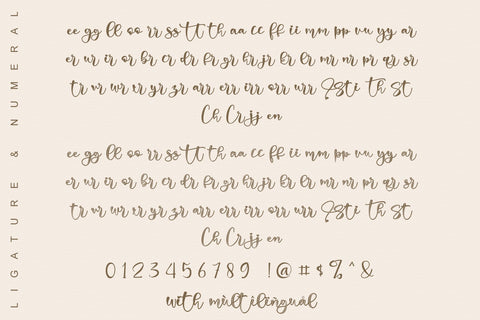 LIGATURE & NUMERAL
ee gg ll oo rr ss tt th aa cc ff ii mm pp vu yy ar
er ur ir or br cr dr fr gr hr jr kr lr mr nr pr qr sr
tr vr wr xr yr zr arr err irr orr urr Qsti Th St
Ch Cr jj en
ee gg ll oo rr ss tt th aa cc ff ii mm pp vu yy ar
er ur ir or br cr dr fr gr hr jr kr lr mr nr pr qr sr
tr vr wr xr yr zr arr err irr orr urr Qsti Th St
Ch Cr jj en
0 1 2 3 4 5 6 7 8 9 !@ # $ % ^ &
with multilingual